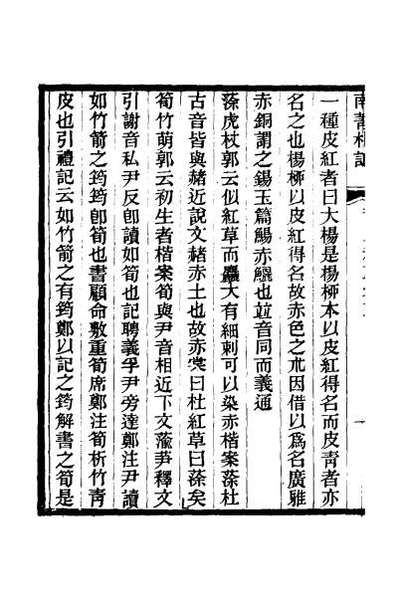 南菁札記
一種皮紅者曰大楊是楊桺本以皮紅得名而皮靑者亦
名之也楊桺以皮紅得名故赤色之朩因借以爲名廣雅
赤銅謂之鍚玉篇鰑赤鱺也竝音同而義通
蒤虎杖郭云似紅草而麤大有細刺可以染赤楷案蒤杜
古音皆與赭近說文赭赤土也故赤棠曰杜紅草曰蒤矣
筍竹萌郭云初生者楷案筍與尹音相近下文蕍芛釋文
引謝音私尹反卽讀如筍也記聘義孚尹旁達鄭注尹讀
如竹箭之筠筠卽筍也書顧命敷重筍席鄭注筍析竹靑
皮也引禮記云如竹箭之有筠鄭以記之筠解書之筍是